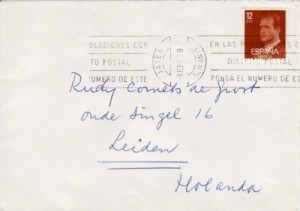 12
PTAS
ESPAÑA
OLACIONES CON
TO POSTAL
NUMERO DE ESTE
JAVEA
EN LAS
DISTRITO POSTAL
PONGA EL NUMERO DE ES
Rudy Cornets de Groot
oude Singel 16
Leiden
Holanda